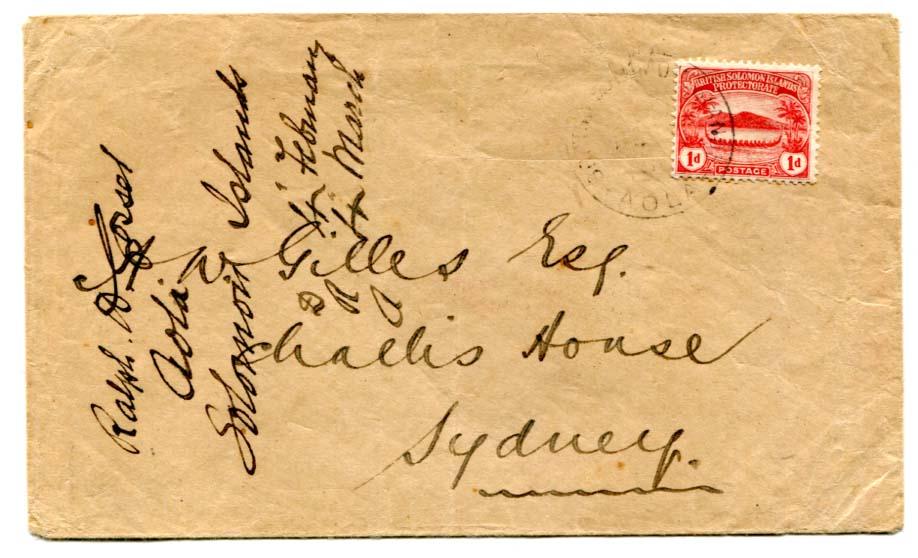 BRITISH SOLOMON ISLANDS
PROTECTORATE
1d 1d
POSTAGE
AOLA
W Gilles Esq.
Challis House
Sydney.
Ralph
Aola
Solomon Islands
4 February
4 March